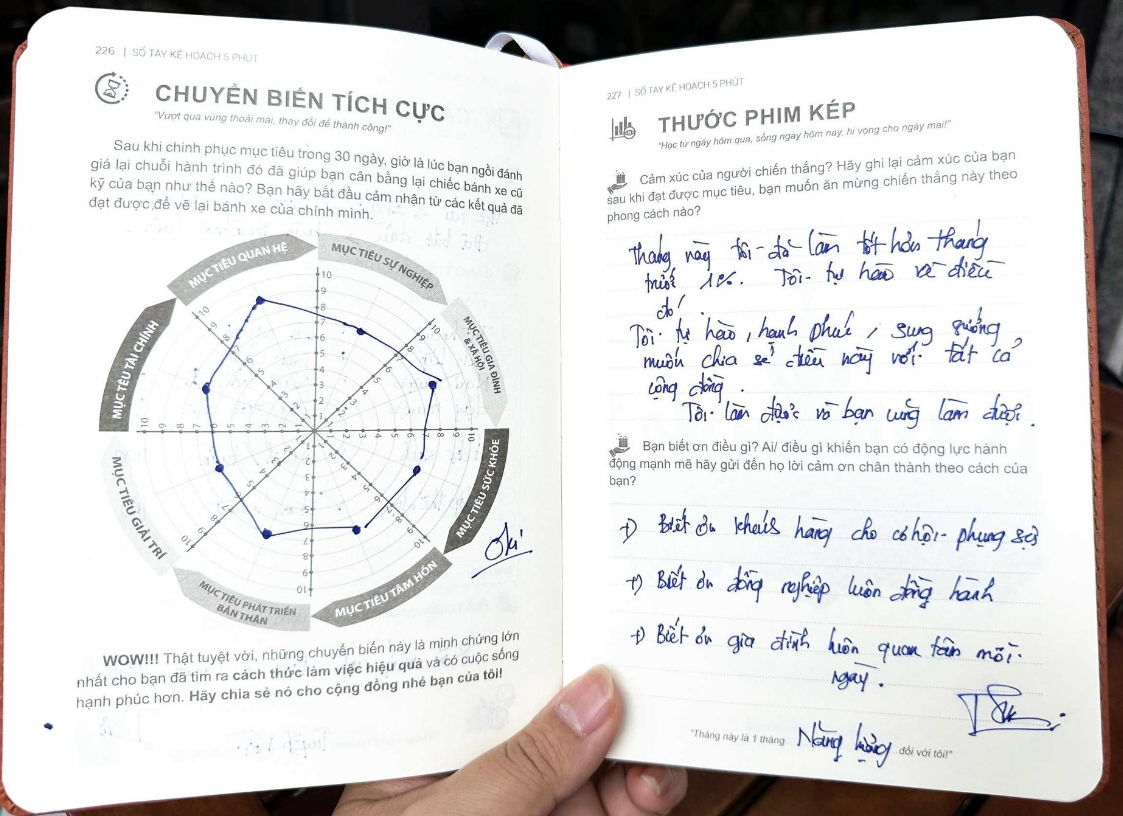 226 | SỔ TAY KẾ HOẠCH 5 PHÚT
CHUYỂN BIẾN TÍCH CỰC
"Vượt qua vùng thoải mái, thay đổi để thành công!"
Sau khi chinh phục mục tiêu trong 30 ngày, giờ là lúc bạn ngồi đánh
giá lại chuỗi hành trình đó đã giúp bạn cân bằng lại chiếc bánh xe cũ
kỹ của bạn như thế nào? Bạn hãy bắt đầu cảm nhận từ các kết quả đã
đạt được để vẽ lại bánh xe của chính mình.
MỤC TIÊU QUAN HỆ
MỤC TIÊU SỰ NGHIỆP
MỤC TIÊU GIA ĐÌNH
& XÃ HỘI
MỤC TIÊU SỨC KHỎE
MỤC TIÊU TÂM HỒN
MỤC TIÊU PHÁT TRIỂN
BẢN THÂN
MỤC TIÊU GIẢI TRÍ
MỤC TIÊU TÀI CHÍNH
Oki
WOW!!! Thật tuyệt vời, những chuyển biến này là minh chứng lớn
nhất cho bạn đã tìm ra cách thức làm việc hiệu quả và có cuộc sống
hạnh phúc hơn. Hãy chia sẻ nó cho cộng đồng nhé bạn của tôi!
227 | SỔ TAY KẾ HOẠCH 5 PHÚT
THƯỚC PHIM KÉP
"Học từ ngày hôm qua, sống ngày hôm nay, hi vọng cho ngày mai!"
Cảm xúc của người chiến thắng? Hãy ghi lại cảm xúc của bạn
sau khi đạt được mục tiêu, bạn muốn ăn mừng chiến thắng này theo
phong cách nào?
Tháng này tôi đã làm tốt hơn tháng
trước 1%. Tôi tự hào về điều
đó!
Tôi tự hào, hạnh phúc, sung sướng
muốn chia sẻ điều này với tất cả
cộng đồng.
Tôi làm được và bạn cũng làm được.
Bạn biết ơn điều gì? Ai/ điều gì khiến bạn có động lực hành
động mạnh mẽ hãy gửi đến họ lời cảm ơn chân thành theo cách của
bạn?
+) Biết ơn khách hàng cho cơ hội phụng sự
+) Biết ơn đồng nghiệp luôn đồng hành
+) Biết ơn gia đình luôn quan tâm mỗi
ngày.
"Tháng này là 1 tháng Năng lượng đối với tôi!"